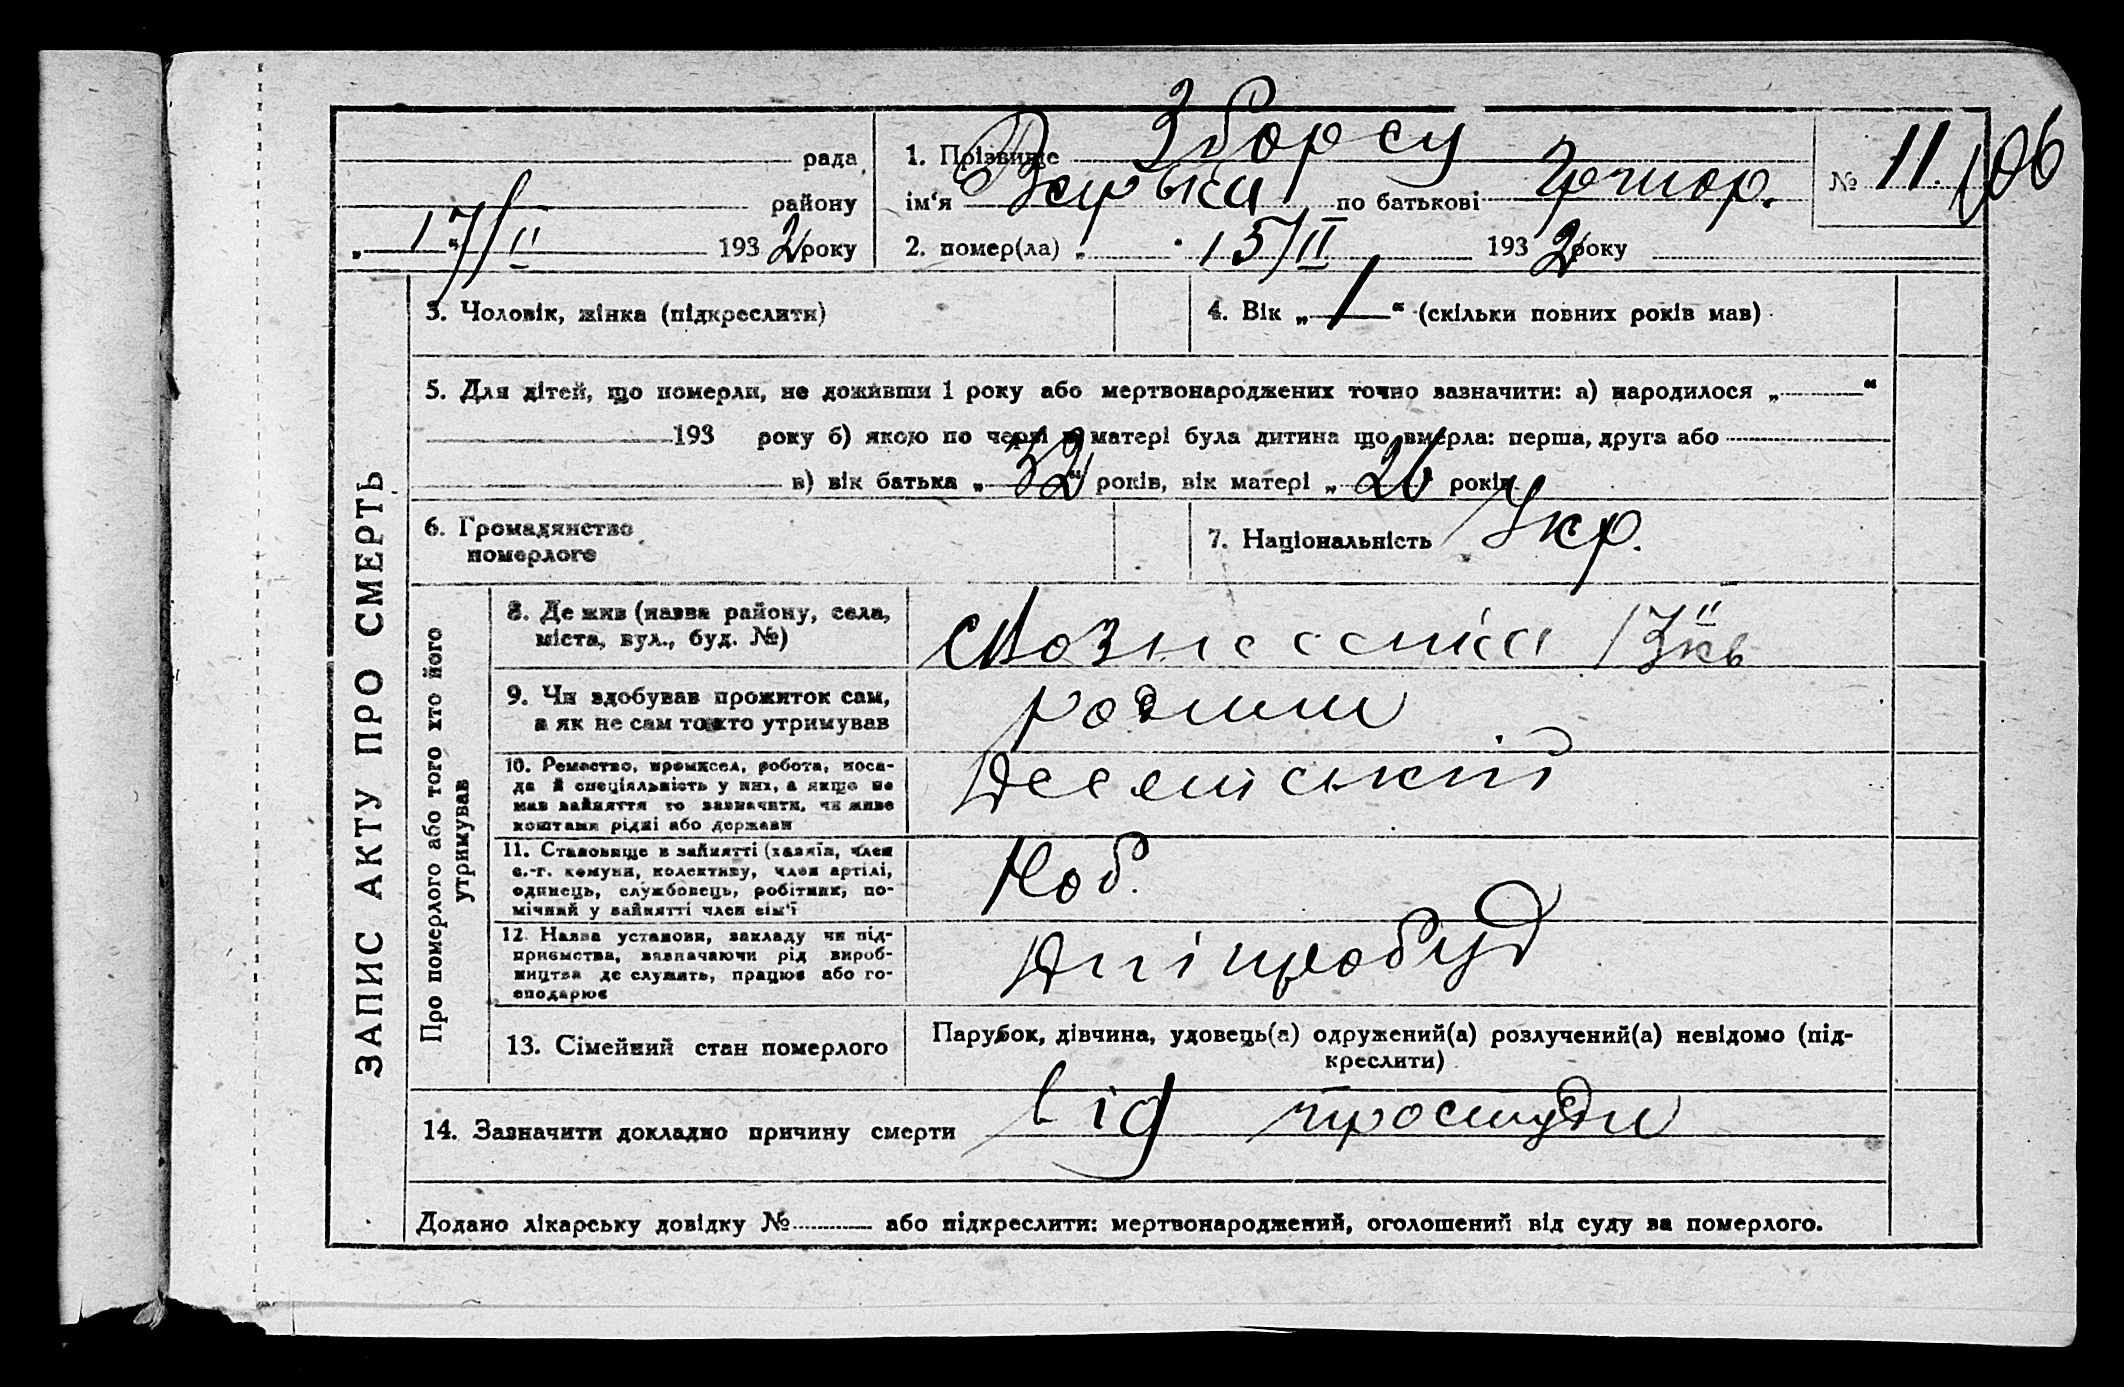 рада
району
„ 17/II “ 1932 року
1. Прізвище
ім‘я по батькові Григор.
2. помер(ла) „ “ 15/II 1932 року
№ 11. 106
ЗАПИС АКТУ ПРО СМЕРТЬ
3. Чоловік, жінка (підкреслити)
4. Вік „ 1 “ (скільки повних років мав)
5. Для дітей, що померли, не доживши 1 року або мертвонароджених точно зазначити: а) народилося „ “
193 року б) якою по черзі в матері була дитина що вмерла: перша, друга або
в) вік батька „ 32 “ років, вік матері „ 26 років
6. Громадянство
померлого
7. Національність Укр.
Про померлого або того хто його
утримував
8. Де жив (назва району, села,
міста, вул., буд. №)
Вознесенка 13 кв
9. Чи здобував прожиток сам,
а як не сам то хто утримував
родини
10. Ремество, промисел, робота, поса-
да й спеціяльність у них, а якщо не
мав зайняття то зазначити, чи живе
коштами рідні або держави
11. Становище в зайнятті (хазяїн, член
с.-г. комуни, колективу, член артілі,
одинець, службовець, робітник, по-
мічний у зайнятті член сім‘ї
Роб.
12. Назва установи, закладу чи під-
приємства, зазначаючи рід вироб-
ництва де служить, працює або го-
сподарює
Дніпробуд
13. Сімейний стан померлого
Парубок, дівчина, удовець(а) одружений(а) розлучений(а) невідомо (під-
креслити)
14. Зазначити докладно причину смерти від простуди
Додано лікарську довідку № або підкреслити: мертвонароджений, оголошений від суду за померлого.